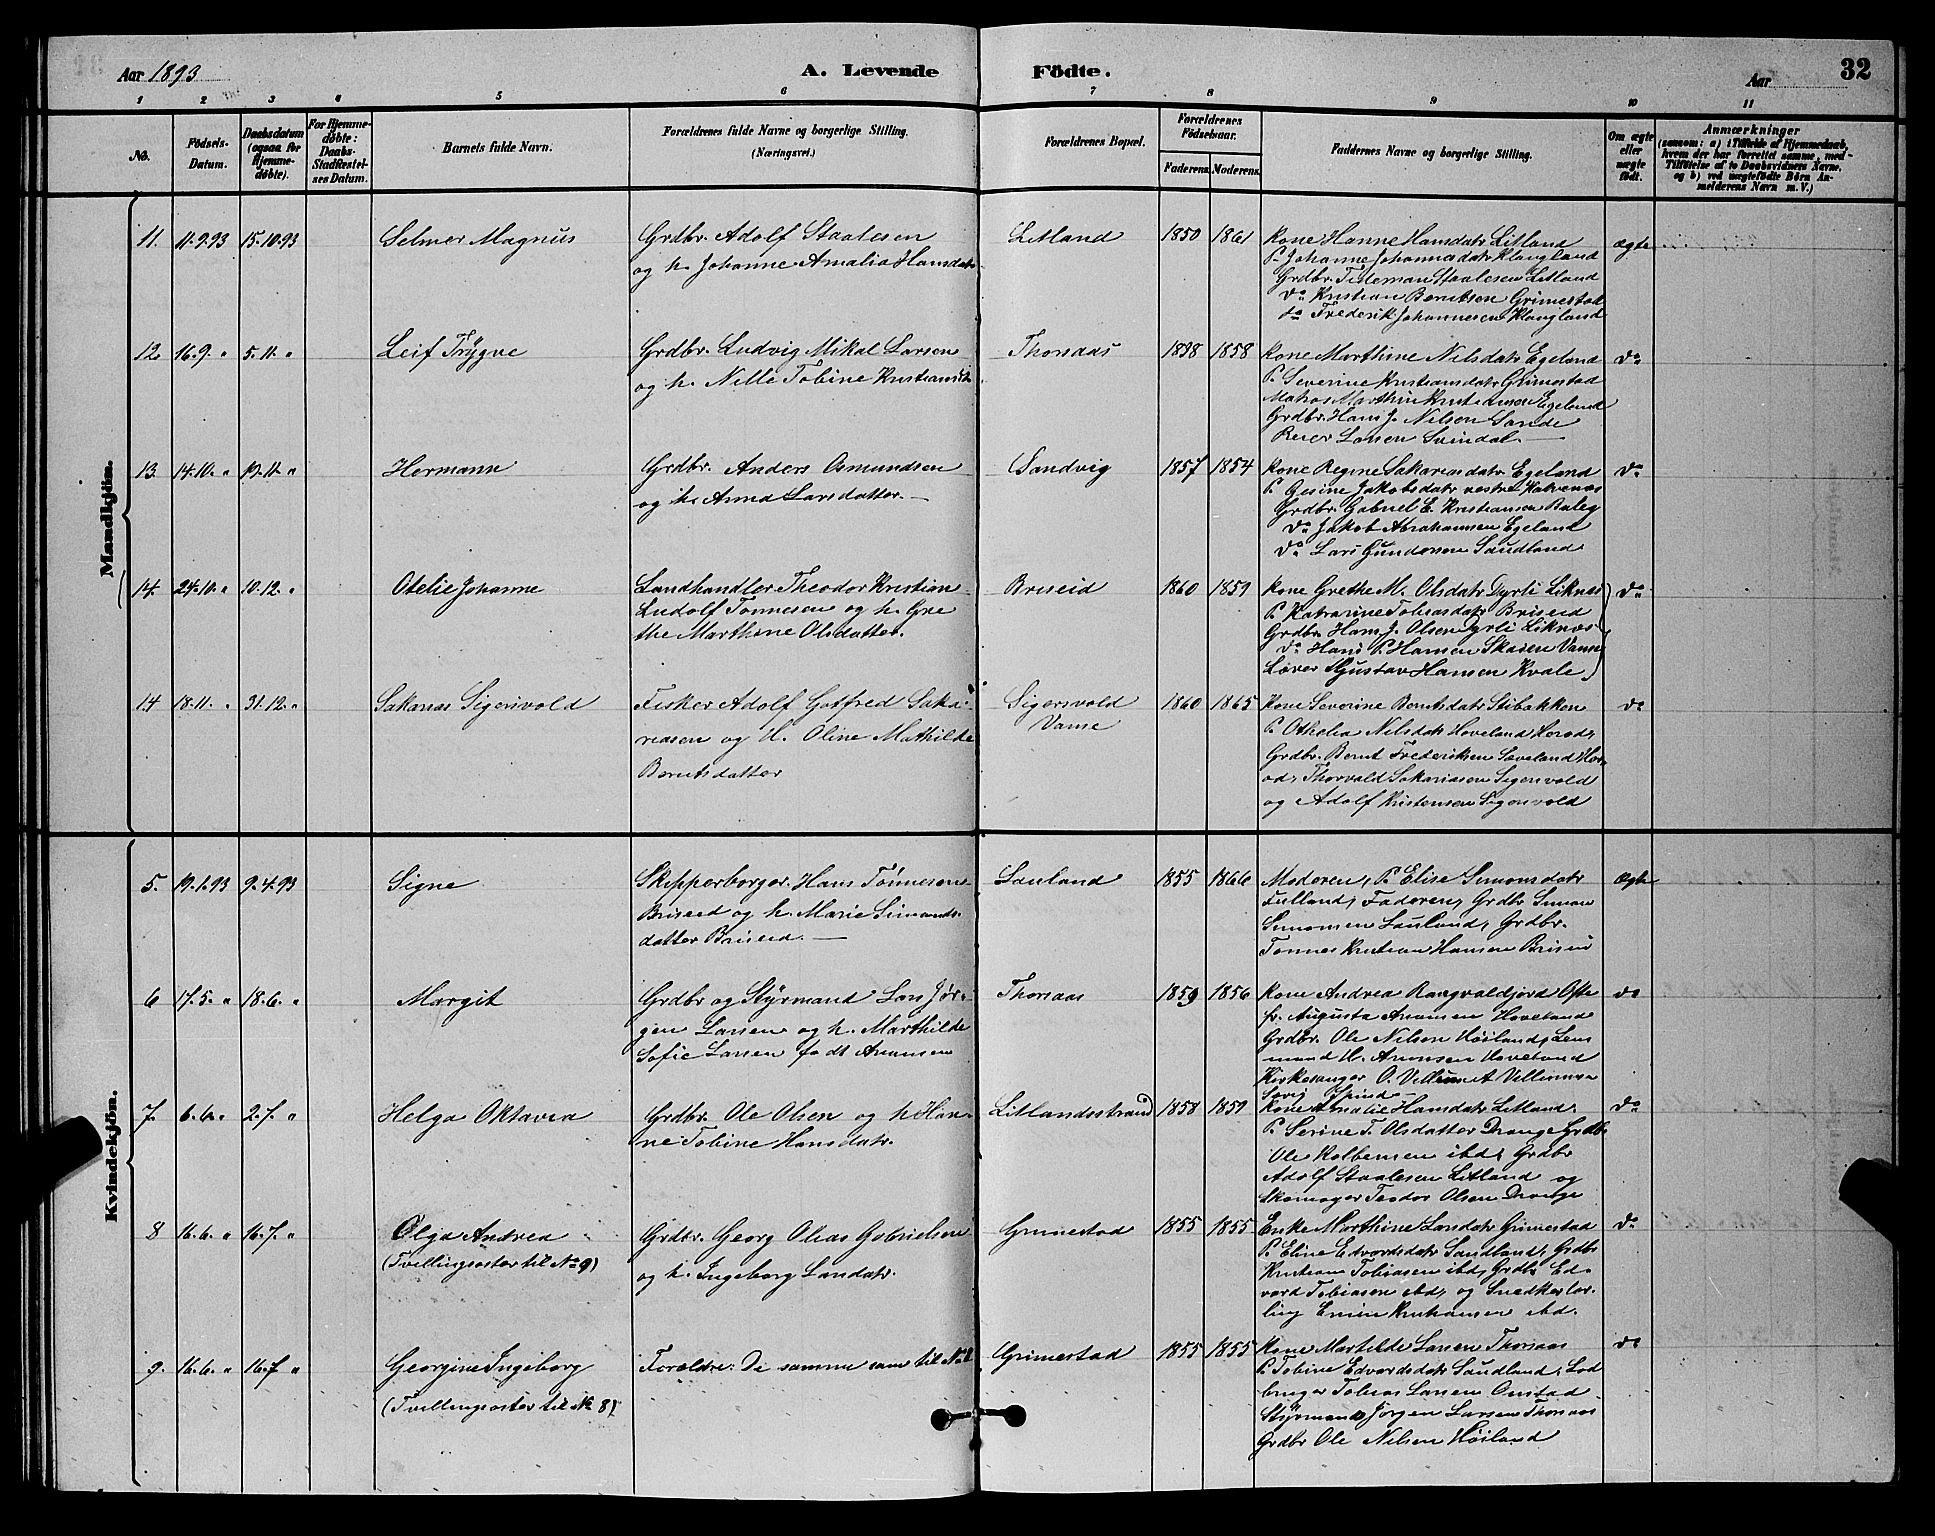 Aar 1893
A. Levende Födte.
Aar
32
1 2 3 4 5 6 7 8 9 10 11
No.
Födsels-Datum.
Daabsdatum (ogsaa for Hjemme-døbte).
For Hjemme-døbte: Daabs-Stadfæstel-ses Datum.
Barnets fulde Navn.
Forældrenes fulde Navne og borgerlige Stilling.
(Næringsvei.)
Forældrenes Bopæl.
Forældrenes Födselsaar.
Faderens. Moderens.
Faddernes Navne og borgerlige Stilling.
Om ægte eller uægte födt.
Anmærkninger
(saasom: a) i Tilfælde af Hjemmedaab, hvem der har forrettet samme, med Tilföielse af to Daabsvidners Navne, og b) ved uægtefödte Börn Anmelderens Navn m. V.)
Mandkjön.
11. 11.9.93 15.10.93 Selmer Magnus
Grdbr. Adolf Staalesen
og h. Johanne Amalia Hansdatr
Litland 1850 1861
Kone Hanne Hansdatr Litland
P. Johanne Johannesdatr Klungland
Grdbr. Tideman Staalesen Litland
do Kristian Berntsen Grimestad
do Frederik Johannesen Klungland
ægte
12. 16.9. " 5.11. " Leif Trygve
Grdbr. Ludvig Mikal Larsen
og h. Nille Tobine Kristiansd.
Thorsaas 1838 1858
Kone Marthine Nilsdatr Egeland
P. Severine Kristiansdatr Grimestad
Matros Marthin Kristiansen Egeland
Grdbr. Hans J. Nilsen Sande
Reier Larsen Svindal.
do
13. 14.10. " 19.11. " Hermann
Grdbr. Anders Osmundsen
og h. Anna Larsdatter.
Sandvig 1857 1854
Kone Regine Sakariasdatr Egeland
P. Gesine Jakobsdatr vestre
Grdbr. Gabriel E. Kristiansen
do Jakob Abrahamsen Egeland
do Lars Gundersen Saudland
do
14. 24.10. " 10.12. " Otelie Johanne
Landhandler Theodor Kristian
Ludolf Tønnesen og h. Gre
the Marthine Olsdatter.
Briseid 1860 1859
Kone Grethe M. Olsdatr Dyrli Liknes
P. Katrarine Tobiasdatr Briseid
Grdbr. Hans J. Olsen Dyrli Liknes
do Hans P. Hansen Skaien Vanse
Lærer Gustav Hansen Kvale
do
14 18.11. " 31.12. " Sakarias Sigersvold
Fisker Adolf Gotfred Saka-
riasen og H. Oline Mathilde
Berntsdatter
Sigersvold
Vanse
1860 1865
Kone Severine Berntsdatr Stibakken
P. Othelia Nilsdatr Hoveland Herod,
Grdbr. Bernt Frederiksen Haveland Her-
od, Thorvald Sakariasen Sigersvold
og Adolf Kristensen Sigersvold
do
Kvindekjön.
5. 19.1.93 9.4.93 Signe
Skipperborger Hans Tönnesen
Briseid og h. Marie Simons-
datter Briseid.
Lauland 1855 1866
Moderen, P. Elise Simonsdatr
Fulland, Faderen, Grdbr Simon
Simonsen Lauland, Grdbr.
Tønnes Kristian Hansen Briseid
Ægte
6 17.5. " 18.6. " Margit
Grdbr og Styrmand Lars Jør-
gen Larsen og h. Marthilde
Sofie Larsen født Aronsen
Thorsaas 1859 1856
Kone Andrea Rangvaldjord Ofte
fr. Augusta Aronsen Hoveland
Grdbr. Ole Nilsen Høiland, Lens
mand H. Aronsen Hoveland
Kirkesanger O. Villumsen
do
7. 6.6. " 2.7. " Helga Oktavia
Grdbr. Ole Olsen og h Han-
ne Tobine Hansdatr.
Litlandsstrand 1858 1859
Kone Amalie Hansdatr Litland.
P. Serine T. Olsdatter Drange Grdbr
Ole Kolbensen ibd, Grdbr
Adolf Staalesen Litland og
Skomager Teodor Olsen Drange
do
8 16.6. " 16.7. " Olga Andrea
(Tvillingsøster til No 9)
Grdbr. Georg Olias Gabrielsen
og h. Ingeborg Larsdatr.
Grimestad 1855 1855
Enke Marthine Larsdatr Grimestad
P. Eline Edvardsdatr Saudland, Grdbr
Kristian Tobiasen ibd, Grdbr Ed-
vard Tobiasen ibd, og Snedkerlær-
ling Emin Kristiansen ibd.
do
9. 16.6. " 16.7 " Georgine Ingeborg
(Tvillingsøster til No 8)
Forældre: De samme som til No 8
Grimestad 1855 1855
Kone Martilde Larsen Thorsaas
P. Tobine Edvardsdatr Saudland, Lod
bruger Tobias Larsen Omstad
Styrmand Jørgen Larsen Thorsaas
Grdbr Ole Nilsen Høiland
do